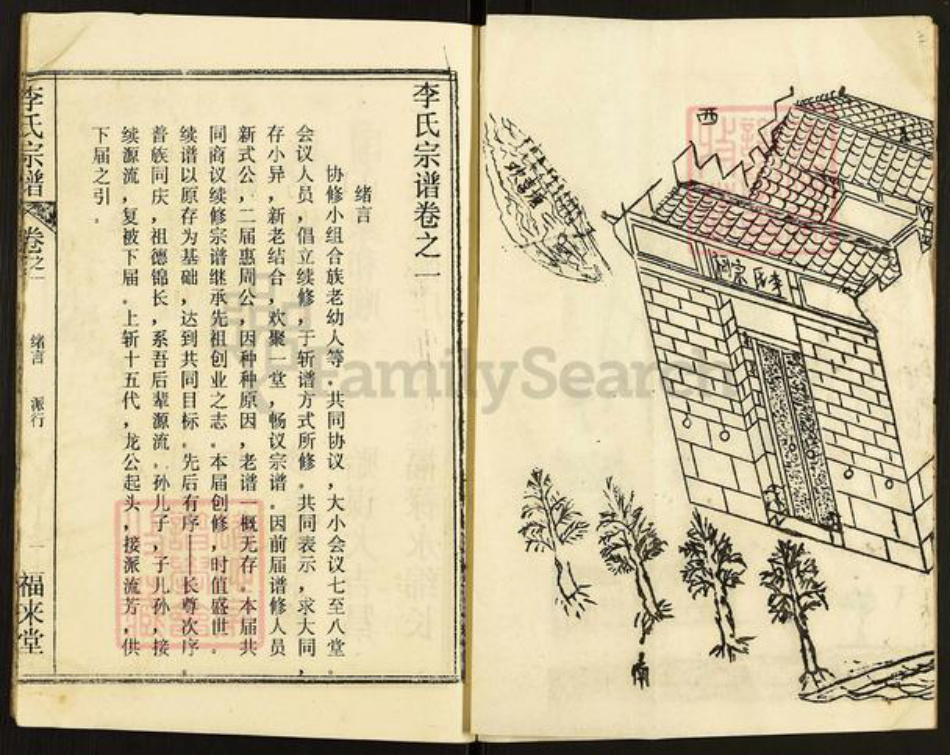 李氏宗谱卷之一
绪言
协修小组合族老幼人等。共同协议，大小会议七至八堂。
会议人员，倡立续修，于斩谱方式所修。共同表示，求大同，
存小异，新老结合，欢聚一堂，畅议宗谱。因前届谱修人员
新式公，二届惠周公，因种种原因，老谱一概无存。本届共
同商议续修宗谱继承先祖创业之志。本届创修，时值盛世。
续谱以原存为基础，达到共同目标。先后有序——长尊次序。
普族同庆，祖德锦长，系吾后辈源流。孙儿子，子儿孙，接
续源流，复被下届。上斩十五代，龙公起头，接派流芳，供
下届之引。
李氏宗谱
卷之一
绪言
派行
一
福来堂
西
李氏宗祠
南
FamilySearch